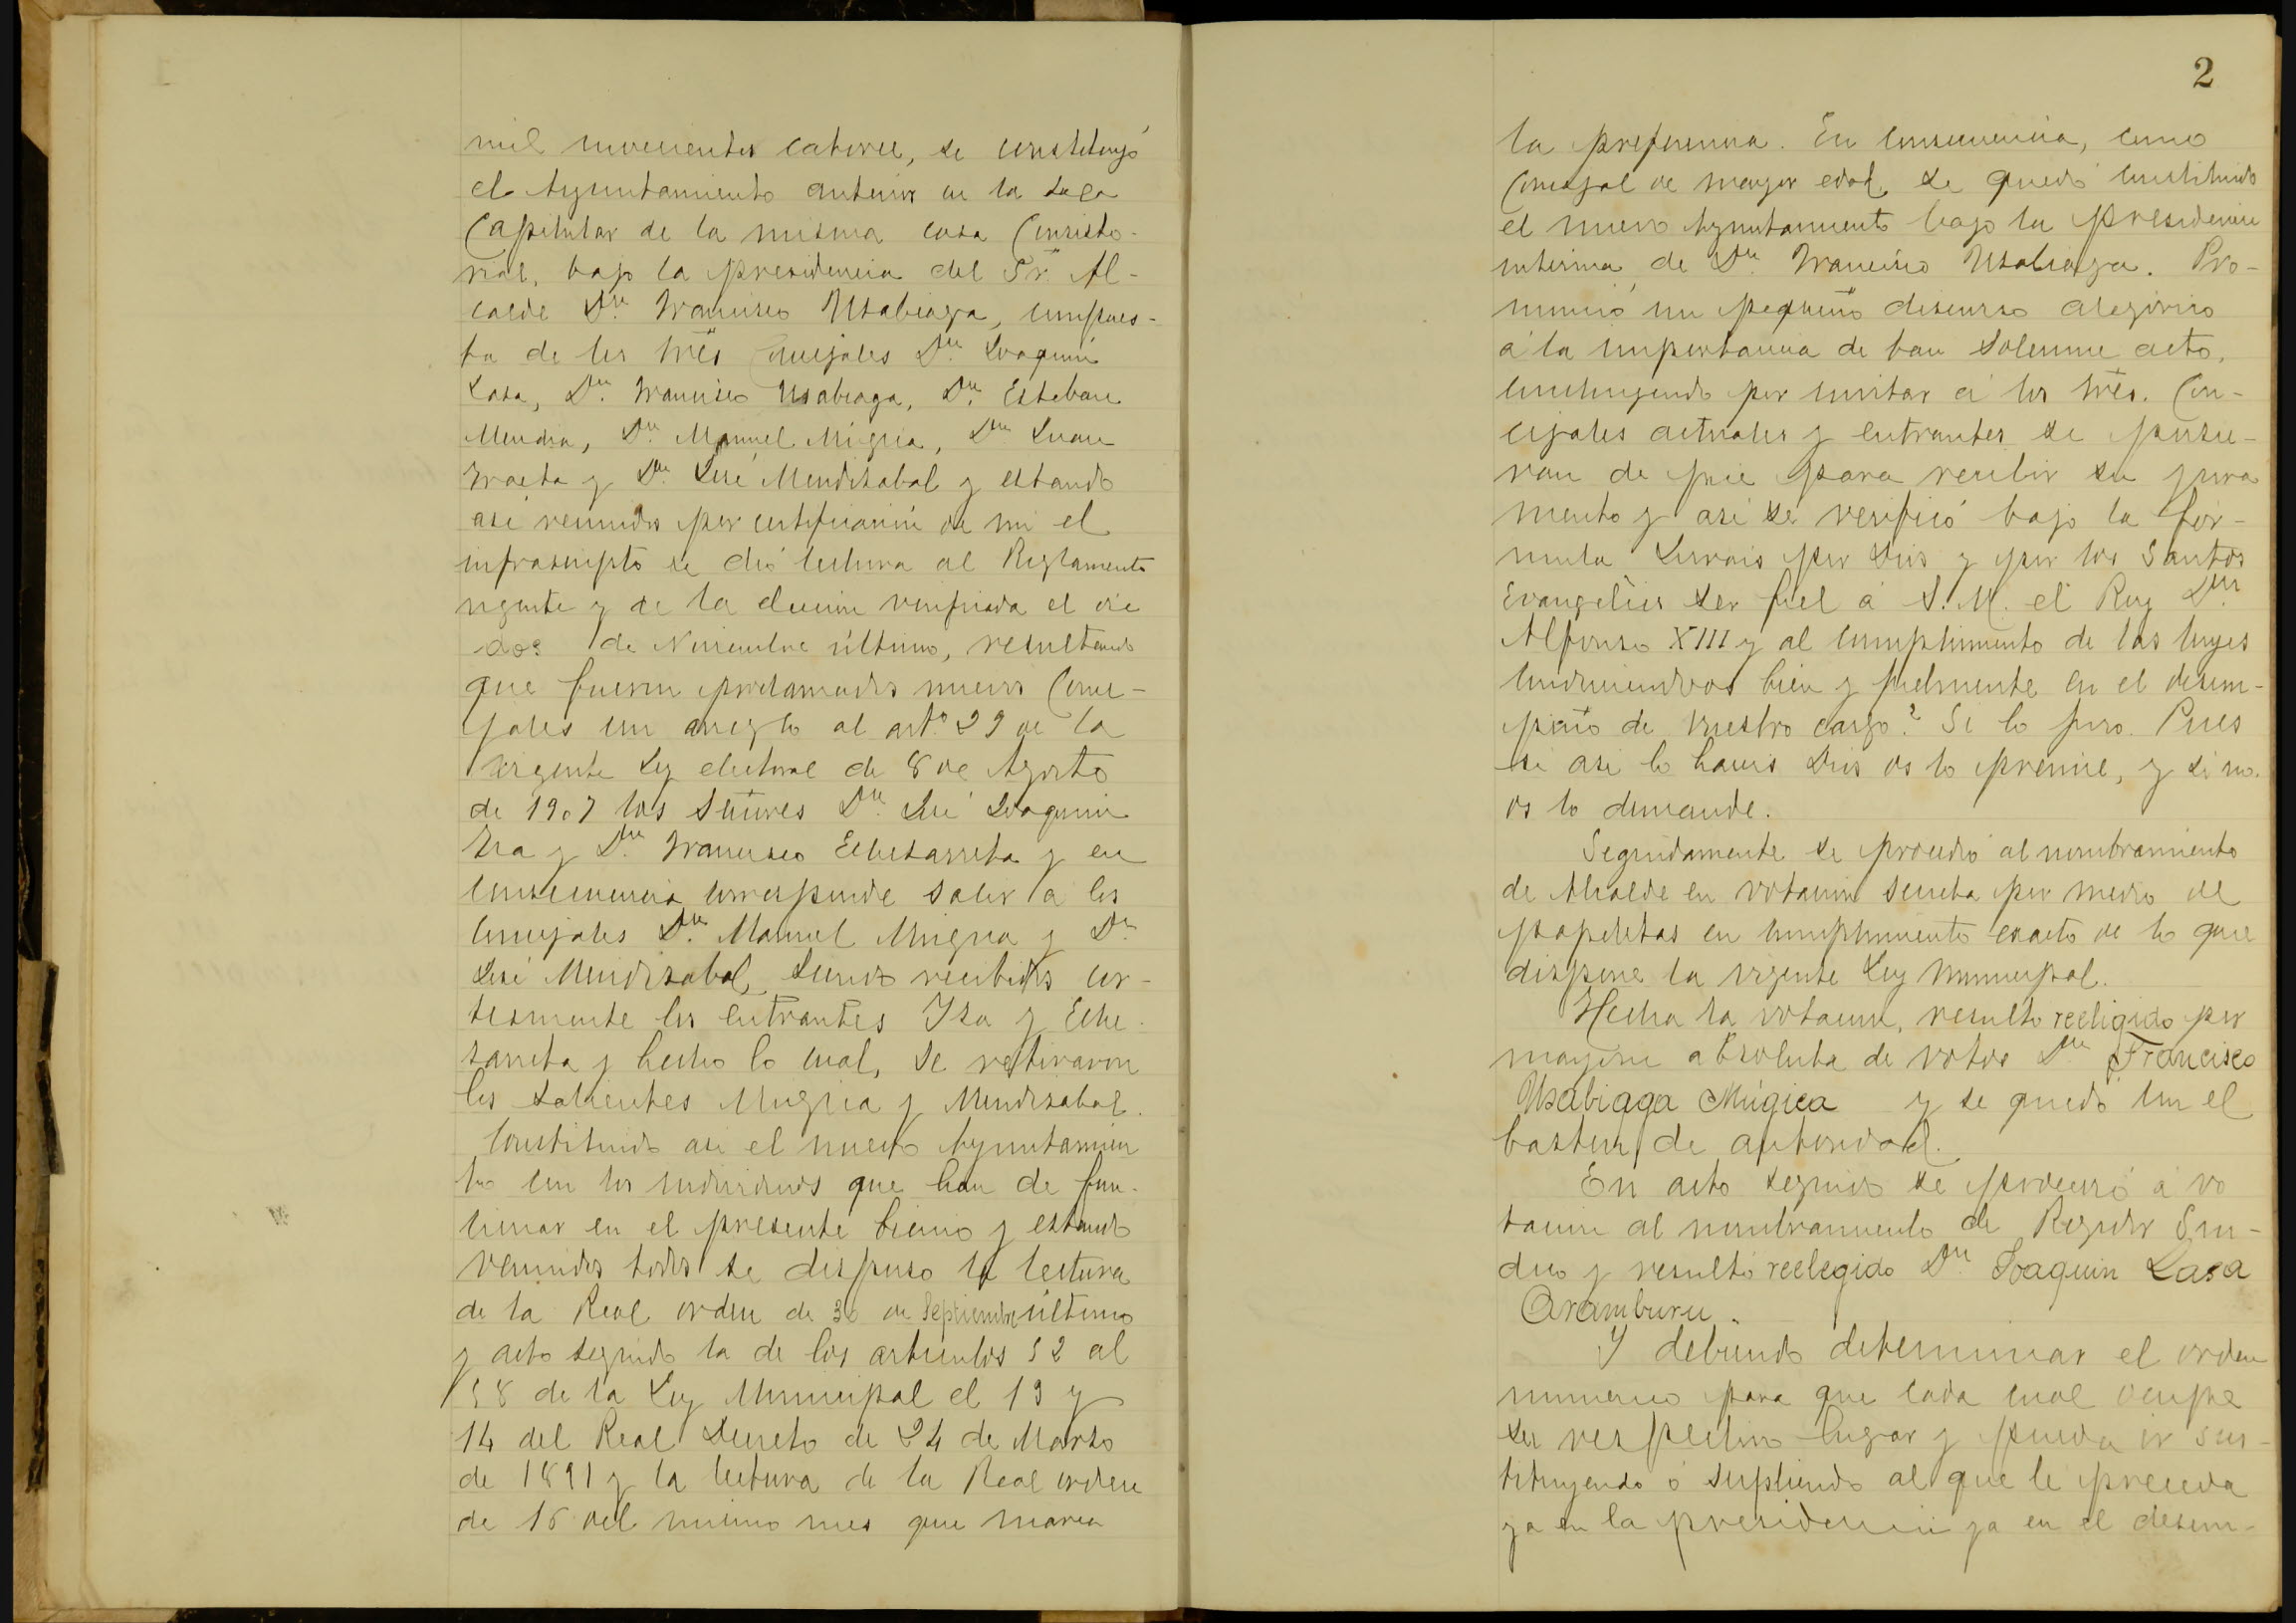 mil novecientos catorce, se constituyó
el Ayuntamiento anterior en la Sala
Capitular de la misma casa Consisto-
rial, bajo la presidencia del Sr. Al-
calde Dn. Francisco Usabiaga, compues-
ta de los Sres Concejales Dn. Joaquin
Lasa, Dn. Francisco Usabiaga, Dn. Esteban
Mendia, Dn. Manuel Múgica, Dn. Juan
Iraeta y Dn. José Mendizabal y estando
asi reunidos por certificación de mi el
infrascripto se dió lectura al Reglamento
vigente y de la elección verificada el dia
dos de Noviembre último, resultando
que fueron proclamados nuevos Conce-
jales con arreglo al artº. 29 de la
vigente Ley electoral de 8 de Agosto
de 1907 los Señores Dn. José Joaquin
Isa y Dn. Francisco Echezarreta y en
consecuencia corresponde salir a los
concejales Dn. Manuel Mugica y Dn.
José Mendizabal, siendo recibidos cor-
tesmente los entrantes Isa y Eche-
zarreta y hecho lo cual, se retiraron
los salientes Mugica y Mendizabal.
Constituido asi el nuevo Ayuntamien
to con los individuos que han de fun-
cionar en el presente bienio y estando
reunidos todos se dispuso la lectura
de la Real orden de 30 de Septiembre último
y acto seguido la de los articulos 52 al
58 de la Ley Municipal el 13 y
14 del Real Decreto de 24 de Marzo
de 1891 y la lectura de la Real orden
de 16 del mismo mes que marca
2
la preferencia. En consecuencia, como
Concejal de mayor edad, se quedó constituido
el nuevo Ayuntamiento bajo la presidencia
interina de Dn. Francisco Usabiaga. Pro-
nunció un pequeño discurso alegórico
á la importancia de tan solemne acto,
concluyendo por invitar á los Sres. Con-
cejales actuales y entrantes se pusie-
ran de pie para recibir su jura
mento y asi se verificó bajo la fór-
mula Jurais por Dios y por los Santos
Evangelios ser fiel á S. M. el Rey Dn.
Alfonso XIII y al cumplimiento de las leyes
conduciendoos bien y fielmente en el desem-
peño de vuestro cargo? Si lo juro. Pues
si asi lo haceis Dios os lo premie, y si no.
os lo demande.
Seguidamente se procedió al nombramiento
de Alcalde en votación secreta por medio de
papeletas en cumplimiento exacto de lo que
dispone la vigente Ley Municipal.
Hecha la votación, resultó reeligido por
mayoria absoluta de votos Dn. Francisco
Usabiaga Múgica y se quedó con el
baston de autoridad.
En acto seguido se procedió á vo
tacion al nombramiento de Regidor Sin-
dico y resultó reelegido Dn. Joaquin Lasa
Aramburu.
Y debiendo determinar el orden
numerico para que cada cual ocupe
su respectivo lugar y pueda ir sus-
tituyendo ó supliendo al que le preceda
ya en la presidencia ya en el desem-